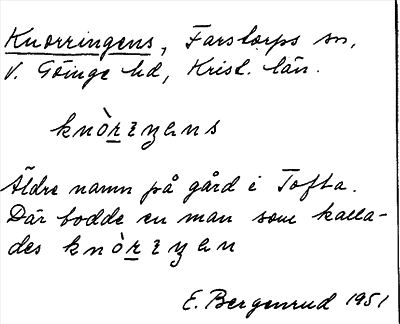 Knorringens, Farstorps sn,
V. Göinge hd, Krist. län.
knòrꝛyens
Äldre namn på gård i Tofta.
Där bodde en man som kalla-
des knòrꝛyen
E. Bergenrud 1951